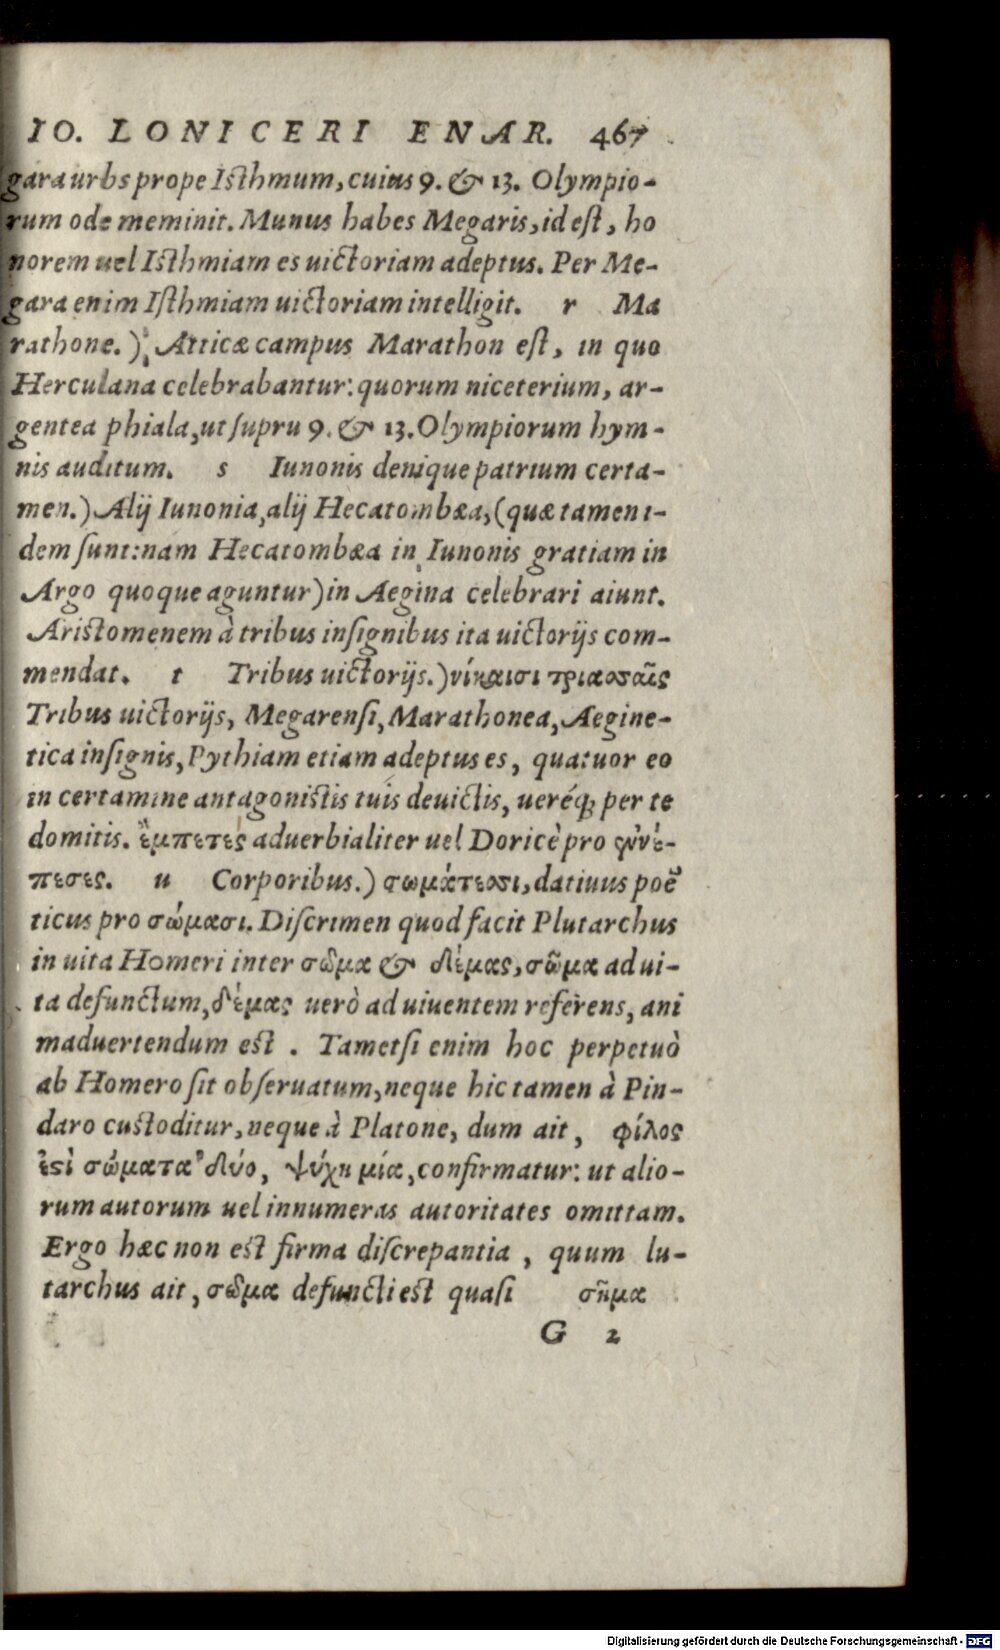 IO. LONICERI ENAR. 467
gara urbs prope Isthmum, cuius 9. & 13. Olympio-
rum ode meminit. Munus habes Megaris, id est, ho
norem uel Isthmiam es uictoriam adeptus. Per Me-
gara enim Isthmiam uictoriam intelligit. r Ma
rathone.) Atticæ campus Marathon est, in quo
Herculana celebrabantur: quorum niceterium, ar-
gentea phiala, ut supru 9. & 13. Olympiorum hym-
nis auditum. s Iunonis denique patrium certa-
men.) Alij Iunonia, alij Hecatombæa, (quæ tamen i-
dem sunt: nam Hecatombæa in Iunonis gratiam in
Argo quoque aguntur) in Aegina celebrari aiunt.
Aristomenem à tribus insignibus ita uictorijs com-
mendat. t Tribus uictorijs.) νίκαισι τρισσαῖς
Tribus uictorijs, Megarensi, Marathonea, Aegine-
tica insignis, Pythiam etiam adeptus es, quatuor eo
in certamine antagonistis tuis deuictis, ueréq; per te
domitis. ἔμπετες aduerbialiter uel Doricè pro ἐνέ-
πεσες. u Corporibus.) σωμάτεσσι, datiuus poë
ticus pro σώμασι. Discrimen quod facit Plutarchus
in uita Homeri inter σῶμα & δέμας, σῶμα ad ui-
ta defunctum, δέμας uerò ad uiuentem referens, ani
maduertendum est. Tametsi enim hoc perpetuò
ab Homero sit obseruatum, neque hic tamen à Pin-
daro custoditur, neque à Platone, dum ait, φίλος
ἐστὶ σώματα δύο, ψύχη μία, confirmatur: ut alio-
rum autorum uel innumeras autoritates omittam.
Ergo hæc non est firma discrepantia, quum lu-
tarchus ait, σῶμα defuncti est quasi σῆμα
G 2
Digitalisierung gefördert durch die Deutsche Forschungsgemeinschaft - DFG